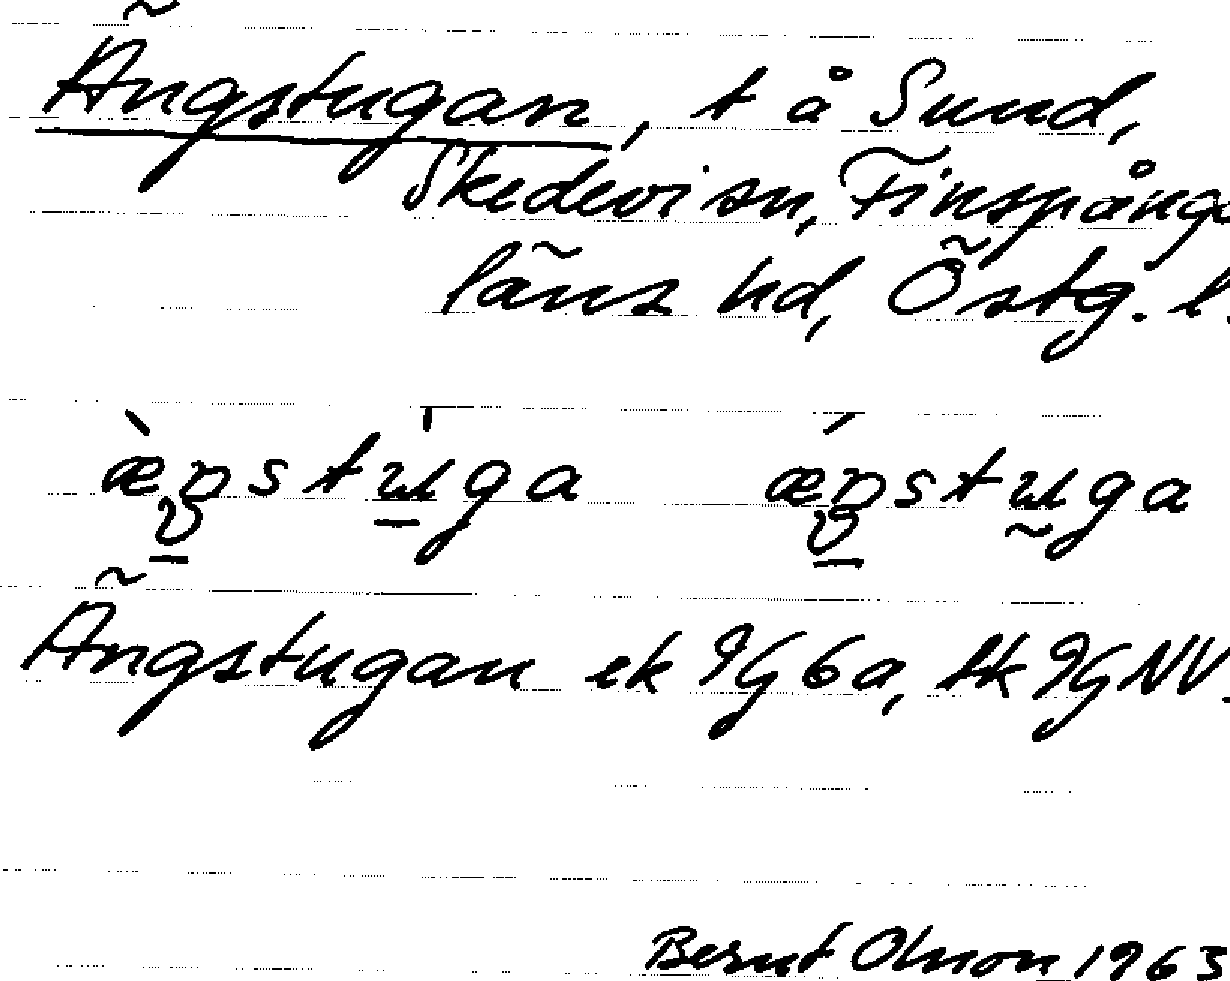 Ängstugan, t å Sund,
Skedevi sn, Finspånga
läns hd, Östg. l.
Ängstugan ek 9G 6a, tk 9G NV.
Bernt Olsson 1963